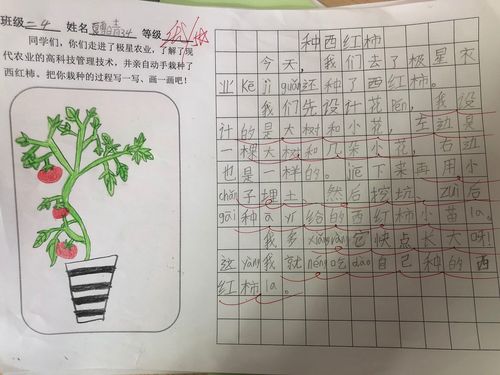 班级 二4 姓名 34 等级
同学们，你们走进了极星农业，了解了现
代农业的高科技管理技术，并亲自动手栽种了
西红柿。把你栽种的过程写一写、画一画吧！
种西红柿
今天，我们去了极星农
业 Ke jì guǎn 还种了西红柿。
我们先设计花 pén，我设
计的是大树和小花，左边是
一棵大树和几朵小花，右边
也是一样的。下来再用小
chǎn 子埋土、然后挖坑、zuì 后
gāi 种 a yí 给的西红柿小苗 la。
我多 xiǎng ràng 它快点长大呀！
这 yàng 我就 néng 吃 dào 自己种的西
红柿 la。